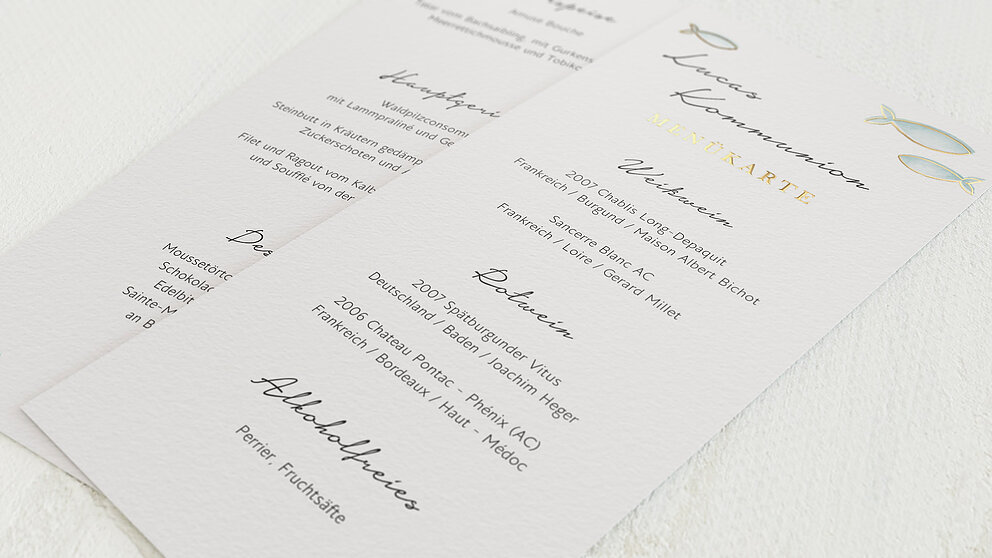 Lucas
Kommunion
MENÜKARTE
Weißwein
2007 Chablis Long-Depaquit
Frankreich / Burgund / Maison Albert Bichot
Sancerre Blanc AC
Frankreich / Loire / Gerard Millet
Rotwein
2007 Spätburgunder Vitus
Deutschland / Baden / Joachim Heger
2006 Chateau Pontac - Phénix (AC)
Frankreich / Bordeaux / Haut - Médoc
Alkoholfreies
Perrier, Fruchtsäfte
Amuse Bouche
Tatar vom Bachsaibling, mit Gurkens
Meerrettichmousse und Tobiko
Hauptgeri
Waldpilzconsomm
mit Lammpraliné und Ge
Steinbutt in Kräutern gedämp
Zuckerschoten und
Filet und Ragout vom Kalb
und Soufflé von der
Des
Moussetörtc
Schokolad
Edelbit
Sainte-M
an B